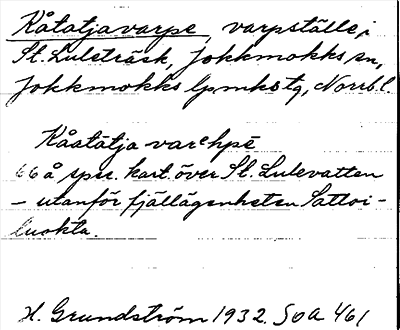 Kåtatjavarpe, varpställe i
St. Luleträsk, Jokkmokks sn,
Jokkmokks lpmkstg, Norrb. l.
Kåatatja varehpē
66 å spec. kart. över St. Lulevatten
– utanför fjällägenheten Sattoi-
luokta.
H. Grundström 1932. SOA 461